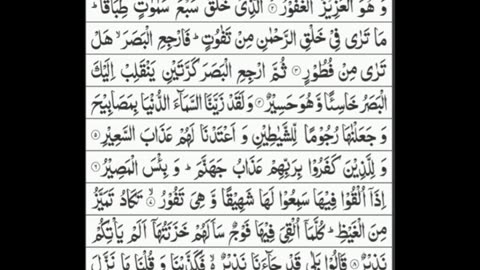 وَ هُوَ الْعَزِيْزُ الْغَفُوْرُ ۙ۝۲ الَّذِىْ خَلَقَ سَبْعَ سَمٰوٰتٍ طِبَاقًا ؕ
مَا تَرٰى فِىْ خَلْقِ الرَّحْمٰنِ مِنْ تَفٰوُتٍ ؕ فَارْجِعِ الْبَصَرَ ۙ هَلْ
تَرٰى مِنْ فُطُوْرٍ ۝۳ ثُمَّ ارْجِعِ الْبَصَرَ كَرَّتَيْنِ يَنْقَلِبْ اِلَيْكَ
الْبَصَرُ خَاسِئًا وَّ هُوَ حَسِيْرٌ ۝۴ وَ لَقَدْ زَيَّنَّا السَّمَآءَ الدُّنْيَا بِمَصَابِيْحَ
وَ جَعَلْنٰهَا رُجُوْمًا لِّلشَّيٰطِيْنِ وَ اَعْتَدْنَا لَهُمْ عَذَابَ السَّعِيْرِ ۝۵
وَ لِلَّذِيْنَ كَفَرُوْا بِرَبِّهِمْ عَذَابُ جَهَنَّمَ ؕ وَ بِئْسَ الْمَصِيْرُ ۝۶
اِذَاۤ اُلْقُوْا فِيْهَا سَمِعُوْا لَهَا شَهِيْقًا وَّ هِىَ تَفُوْرُ ۙ۝۷ تَكَادُ تَمَيَّزُ
مِنَ الْغَيْظِ ؕ كُلَّمَاۤ اُلْقِىَ فِيْهَا فَوْجٌ سَاَلَهُمْ خَزَنَتُهَاۤ اَلَمْ يَاْتِكُمْ
نَذِيْرٌ ۝۸ قَالُوْا بَلٰى قَدْ جَآءَنَا نَذِيْرٌ ۙ۬ فَكَذَّبْنَا وَ قُلْنَا مَا نَزَّلَ